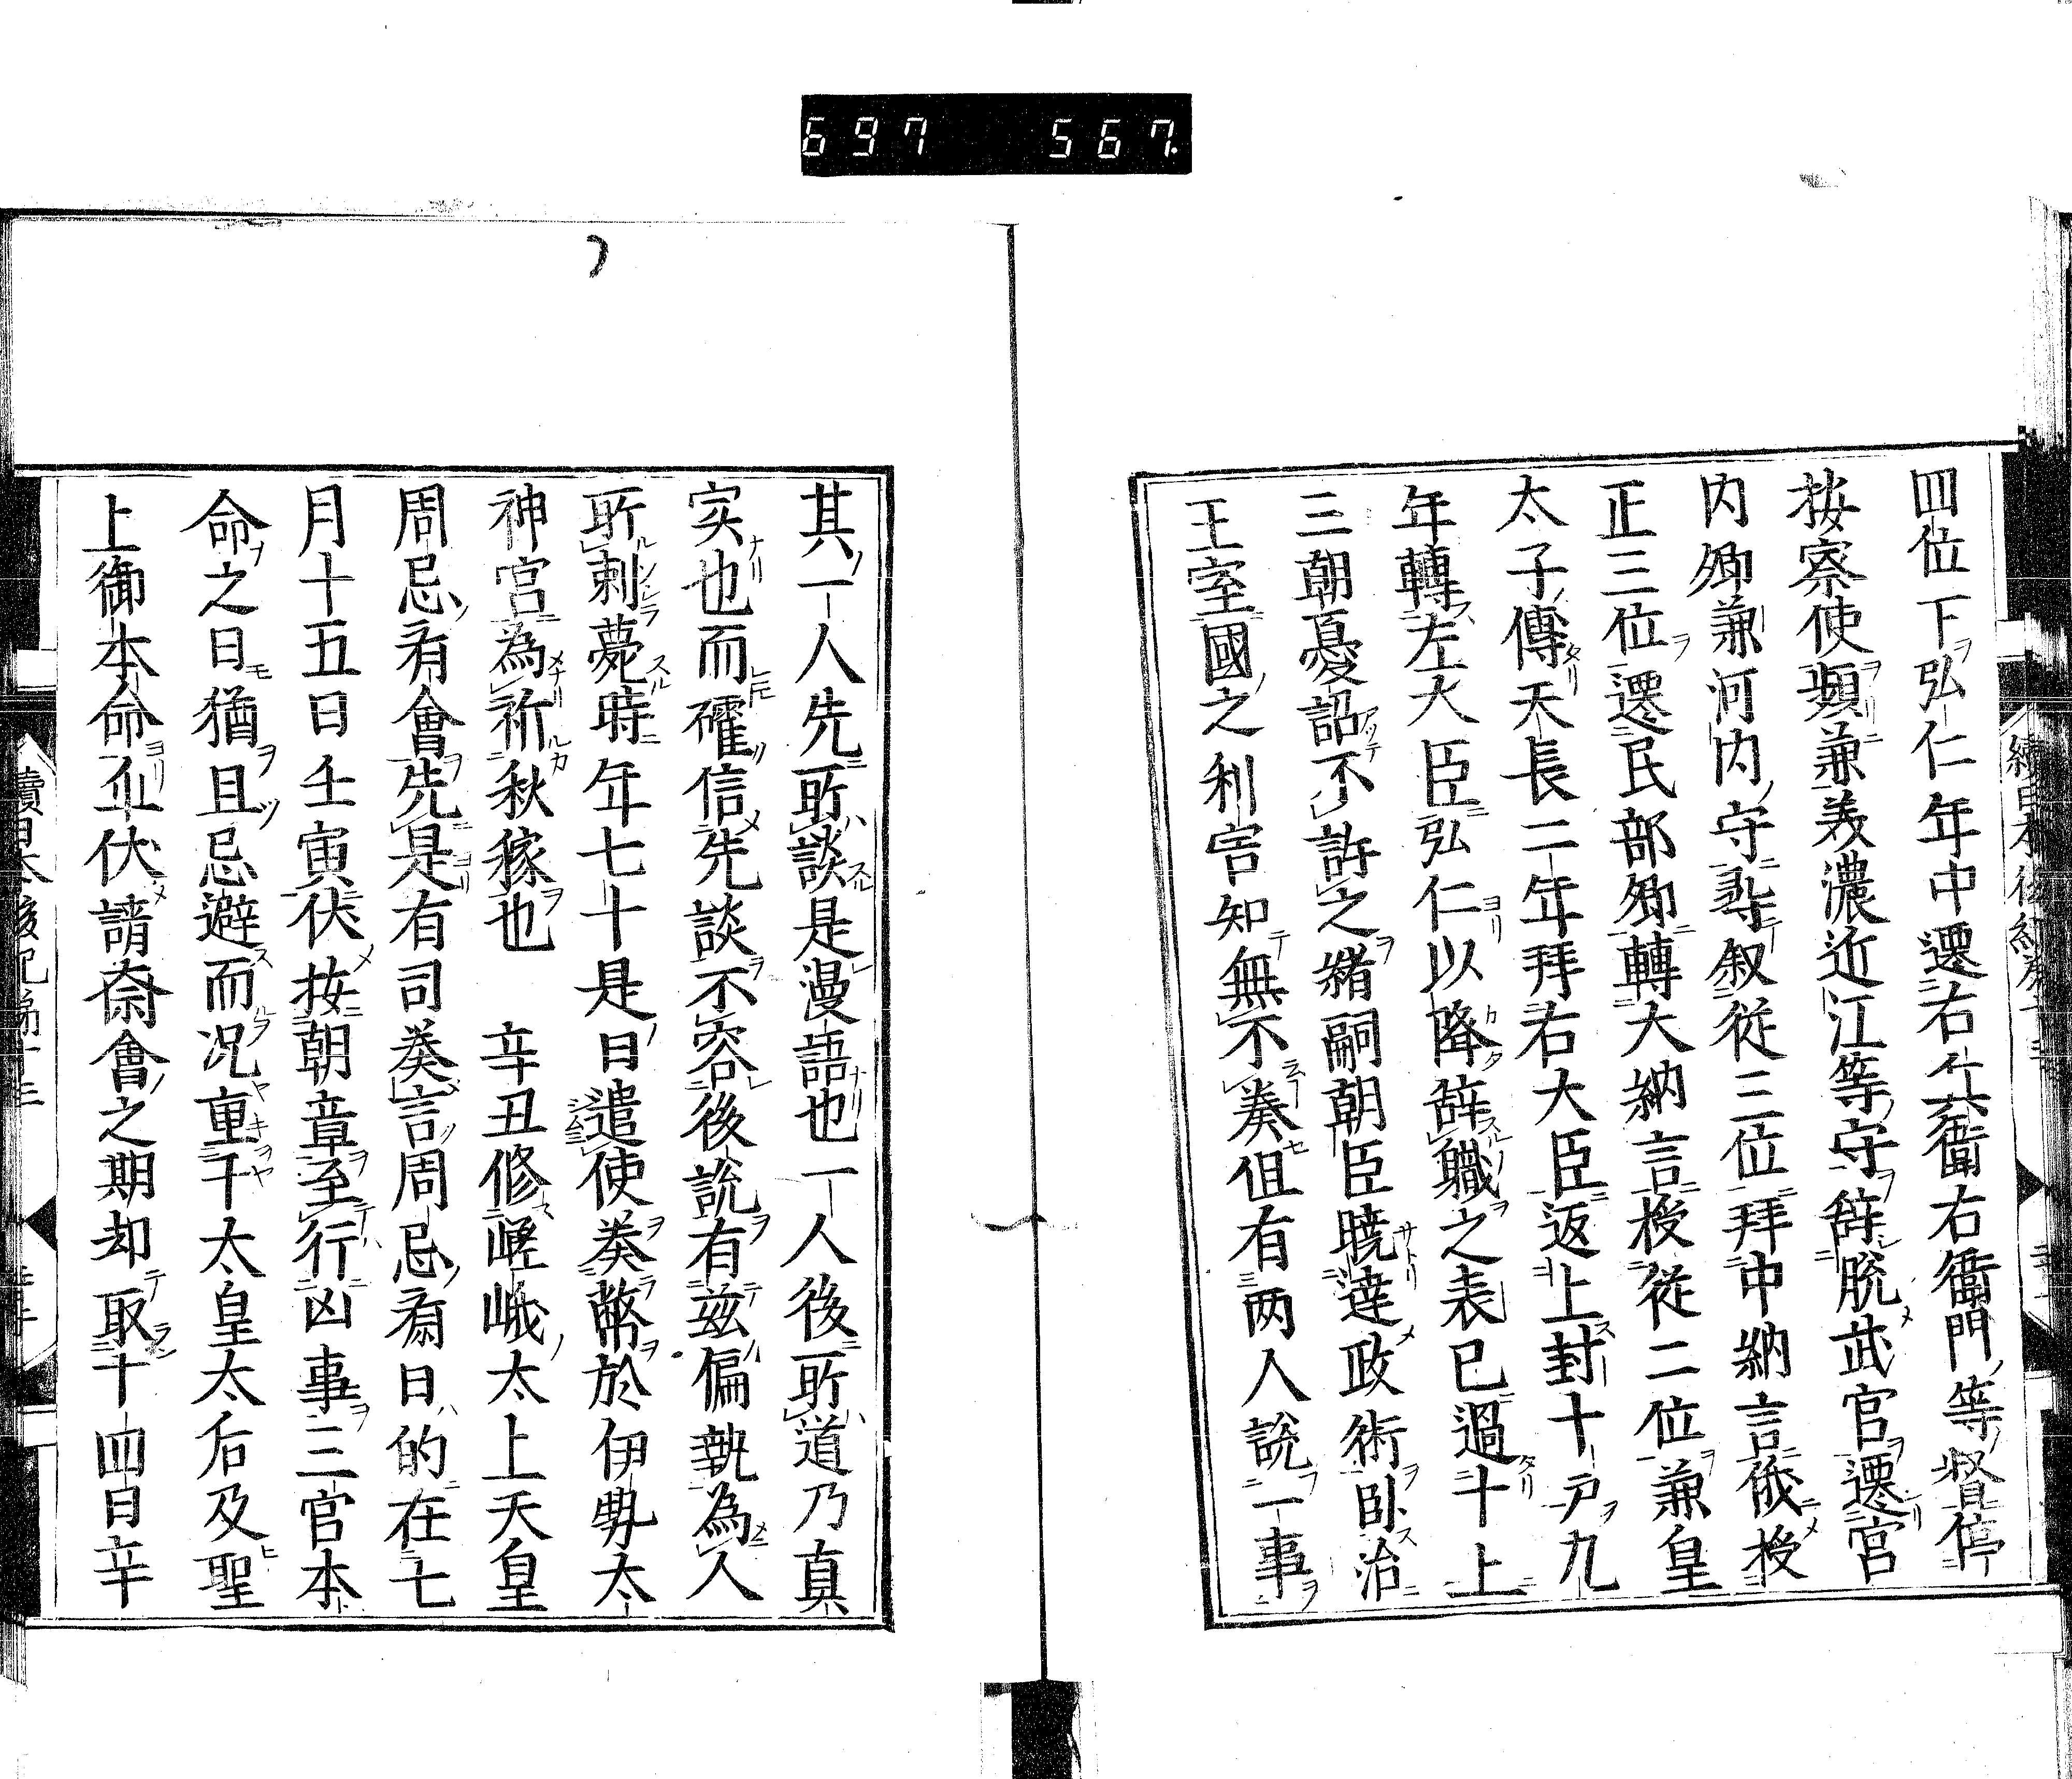 697 567
四位下弘仁年中遷右兵衛右衛門等督停
按察使頻兼美濃近江等守辞脱武官遷宮
内卿兼河内守尋叙従三位拜中納言俄授
正三位遷民部卿轉大納言授従二位兼皇
太子傅天長二年拜右大臣返上封十戸九
年轉左大臣弘仁以降辞職之表已過十上
三朝憂詔不許之緒嗣朝臣暁達政術臥治
王室國之利害知無不奏但有両人説一事
其一人先所談是漫語也一人後所道乃真
实也而確信先談不容後説有兹偏執為人
所刺薨時年七十是日遣使奏幣於伊勢太
神宮為祈秋稼也 辛丑修嵯峨太上天皇
周忌斎會先是有司奏言周忌斎日的在七
月十五日壬寅伏按朝章至行凶事三官本
命之日猶且忌避而况重千太皇太后及聖
上御本命並伏請斎會之期却取十四日辛
續日本後紀第十三